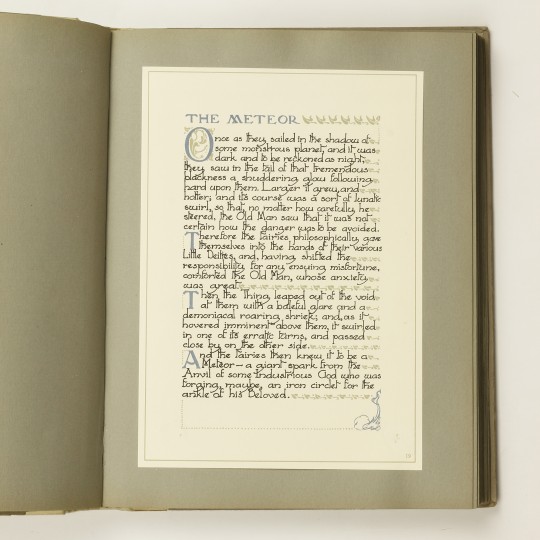 THE METEOR
Once as they sailed in the shadow of
some monstrous planet, and it was
dark and to be reckoned as night,
they saw in the tail of that tremendous
blackness a shuddering glow following
hard upon them. Larger it grew, and
hotter; and its course was a sort of lunatic
swirl, so that, no matter how carefully he
steered, the Old Man saw that it was not
certain how the danger was to be avoided.
Therefore the Fairies philosophically gave
themselves into the hands of their various
Little Deities, and, having shifted the
responsibility for any ensuing misfortune,
comforted the Old Man, whose anxiety
was great.
Then the Thing leaped out of the void
at them with a baleful glare and a
demoniacal roaring shriek; and, as it
hovered imminent above them, it swirled
in one of its erratic turns, and passed
close by on the other side.
And the Fairies then knew it to be a
Meteor — a giant spark from the
Anvil of some industrious God who was
forging, maybe, an iron circlet for the
ankle of his Beloved.